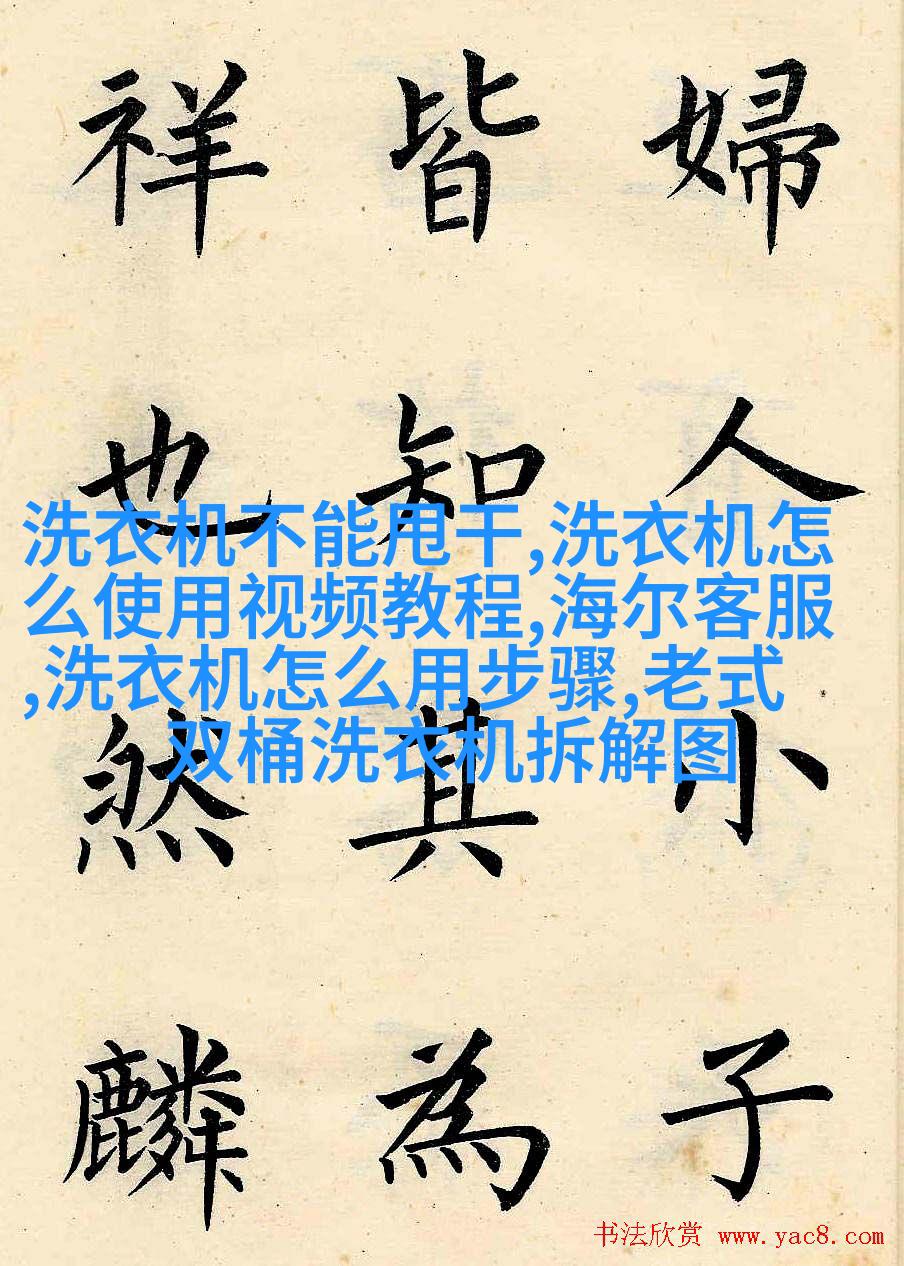 婦人小子
皆知其為
祥也然麟
洗衣机不能甩干,洗衣机怎
么使用视频教程,海尔客服
,洗衣机怎么用步骤,老式
双桶洗衣机拆解图
书法欣赏 www.yac8.com